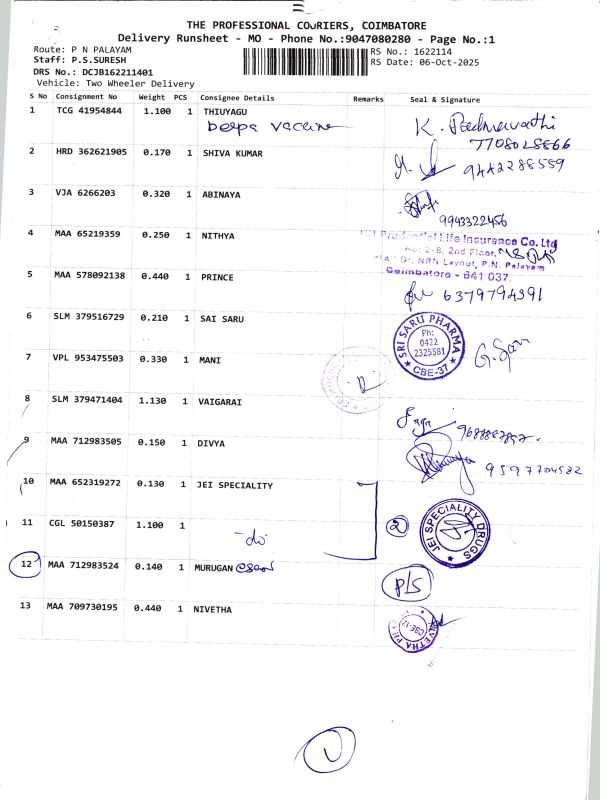 THE PROFESSIONAL COURIERS, COIMBATORE
Delivery Runsheet - MO - Phone No.:9047080280 - Page No.:1
Route: P N PALAYAM
RS No.: 1622114
Staff: P.S.SURESH
RS Date: 06-Oct-2025
DRS No.: DCJB162211401
Vehicle: Two Wheeler Delivery
S No Consignment No Weight PCS Consignee Details Remarks Seal & Signature
1 TCG 41954844 1.100 1 THIUYAGU
vaccine
K. Padmavathi
2 HRD 362621905 0.170 1 SHIVA KUMAR
9442288559
3 VJA 6266203 0.320 1 ABINAYA
9943322456
4 MAA 65219359 0.250 1 NITHYA
Prudential Life Insurance Co. Ltd
2nd Floor,
NRN Layout, P.N. Palayam
Coimbatore - 641 037.
5 MAA 578092138 0.440 1 PRINCE
6379794391
6 SLM 379516729 0.210 1 SAI SARU
SRI SARU PHARMA
Ph:
0422
2325581
CBE-37
7 VPL 953475503 0.330 1 MANI
8 SLM 379471404 1.130 1 VAIGARAI
9 MAA 712983505 0.150 1 DIVYA
9597704582
10 MAA 652319272 0.130 1 JEI SPECIALITY
JEI SPECIALITY DRUGS
11 CGL 50150387 1.100 1
-do
2
12 MAA 712983524 0.140 1 MURUGAN
P/S
13 MAA 709730195 0.440 1 NIVETHA
CBE-12